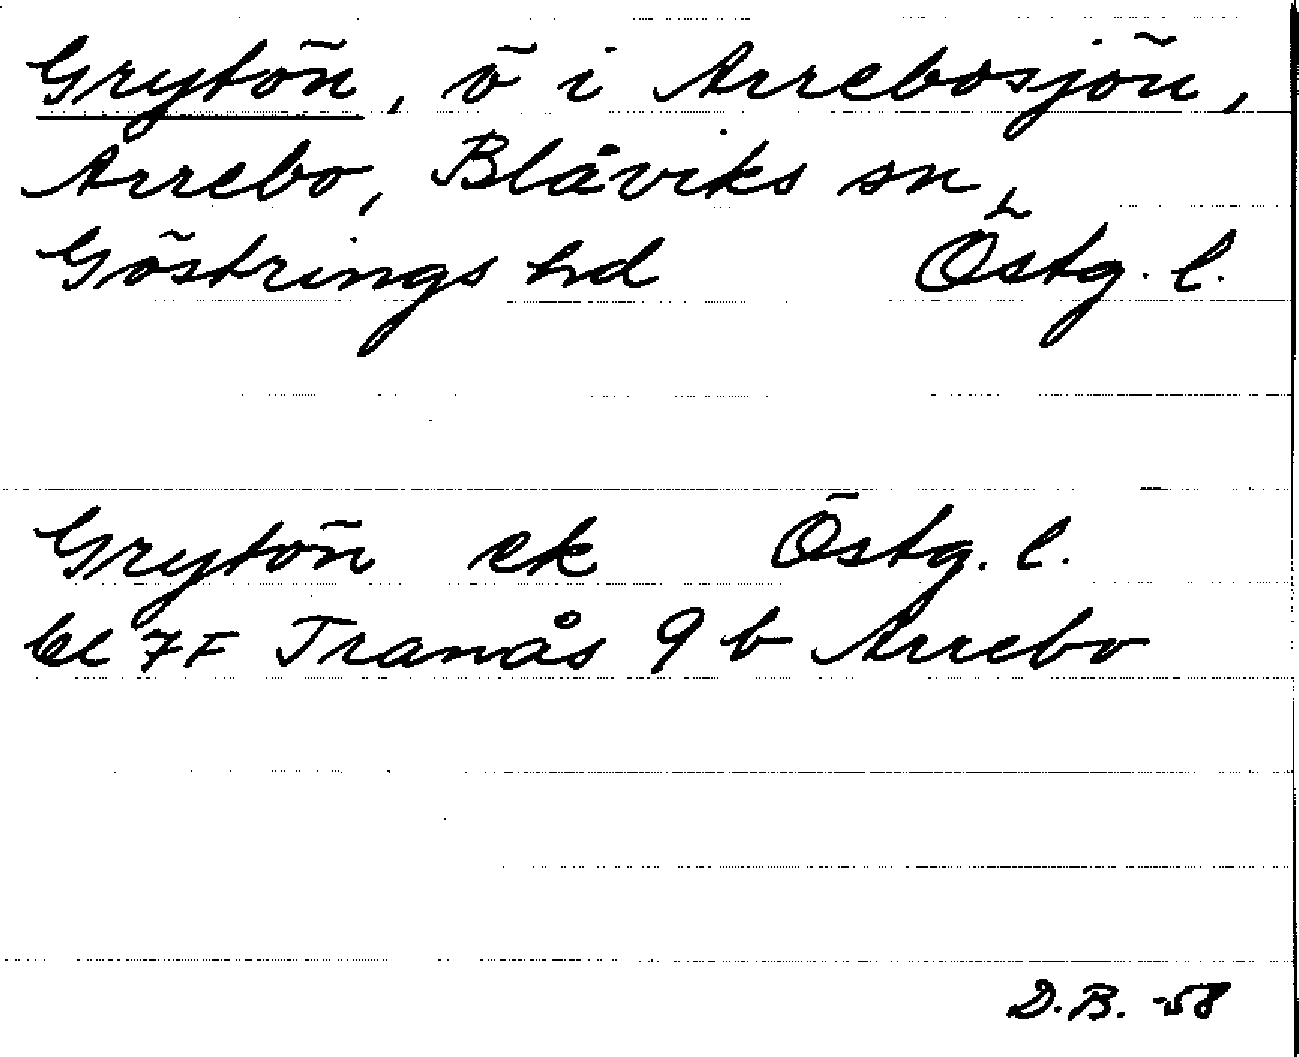 Grytön, ö i Arrebosjön,
Arrebo, Blåviks sn,
Göstrings hd Östg. l.
Grytön ek Östg. l.
bl 7F Tranås 9 b Arrebo
D.B. -58